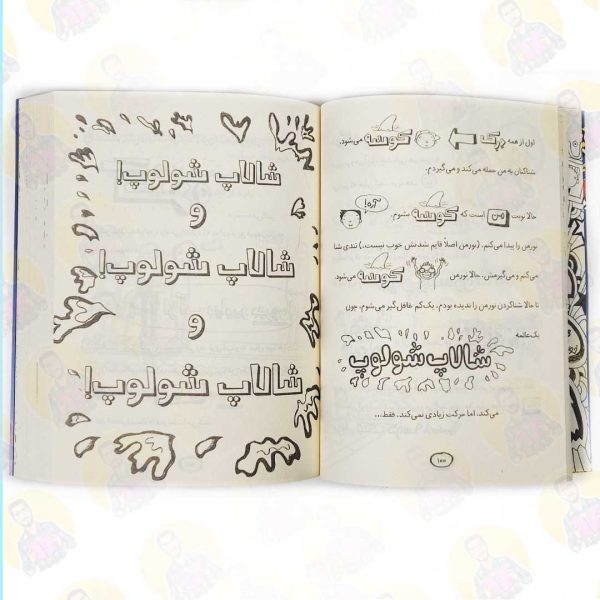 اول از همه دِرِک کوسه می‌شود.
شناکنان به من حمله می‌کند و می‌گیردم.
حالا نوبت من است که کوسه بشوم. آره!
نورمن را پیدا می‌کنم. (نورمن اصلاً قایم شدنش خوب نیست.) تندی شنا
می‌کنم و می‌گیرمش. حالا نورمن کوسه می‌شود.
تا حالا شناکردن نورمن را ندیده بودم. یک‌کم غافل‌گیر می‌شوم، چون
یک‌عالمه
شالاپ شولوپ
می‌کند، اما حرکت زیادی نمی‌کند. فقط...
۱۰۰
شالاپ شولوپ!
و
شالاپ شولوپ!
و
شالاپ شولوپ!